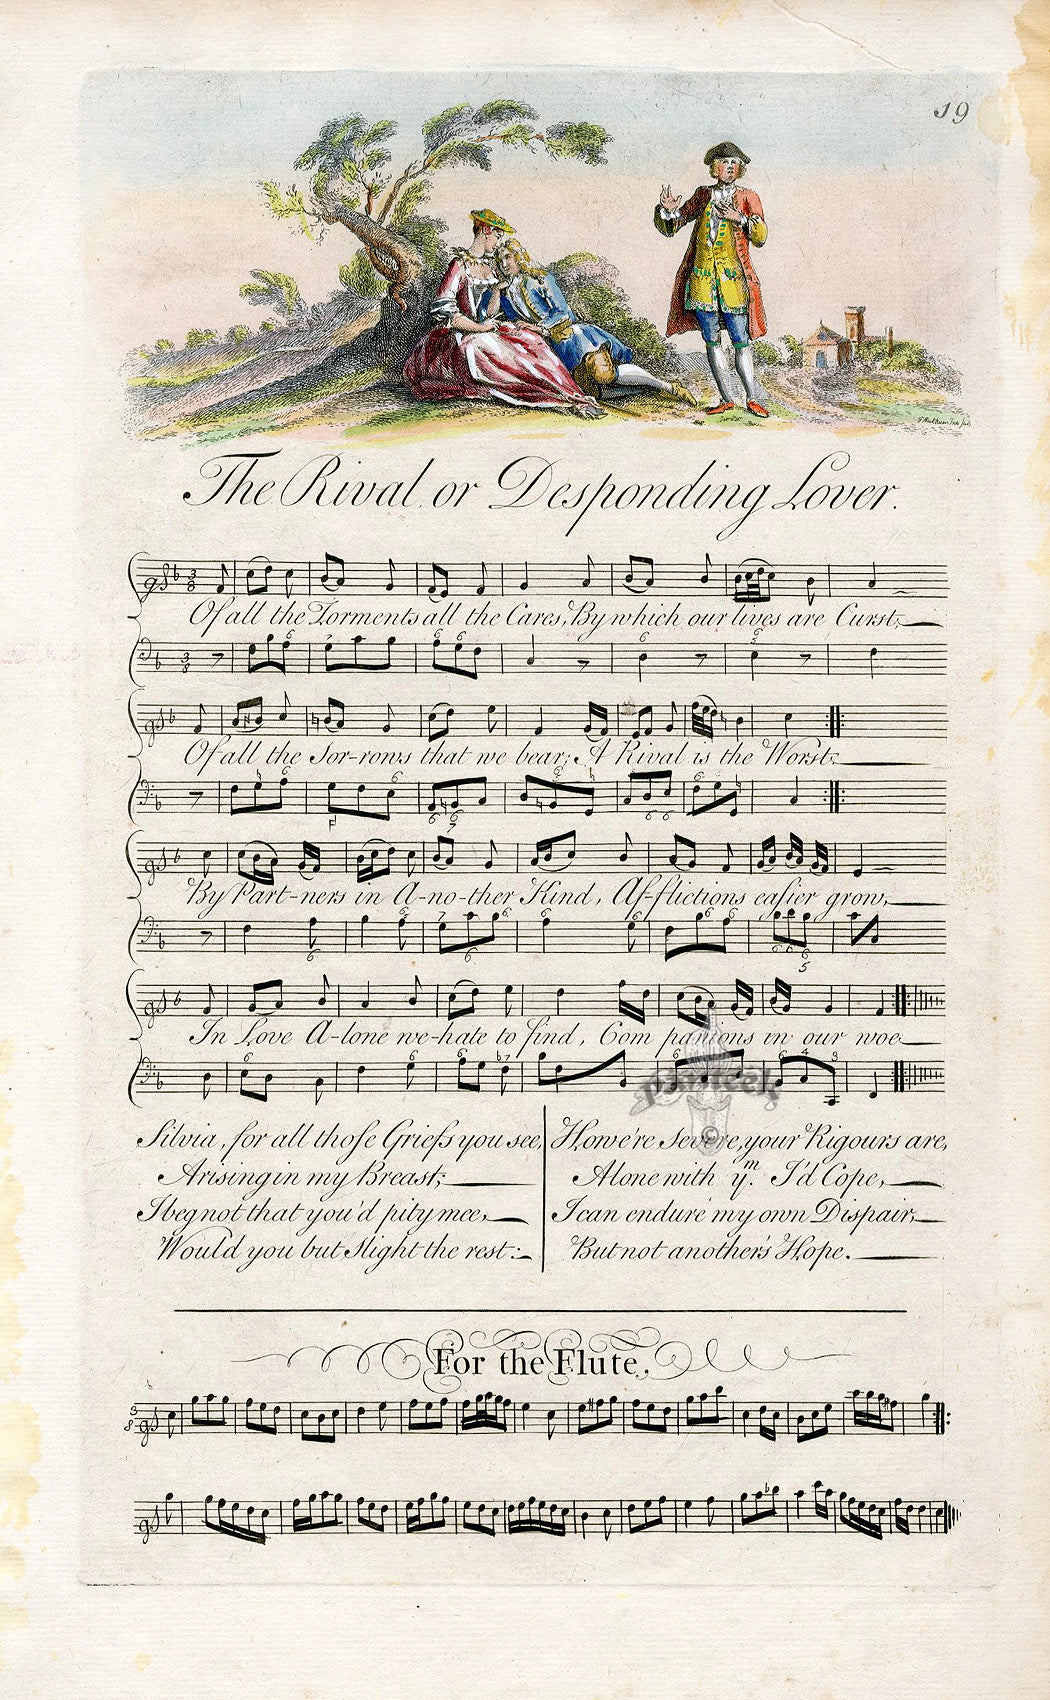 19
The Rival, or Desponding Lover.
Of all the Torments all the Cares, By which our lives are Curst;
Of all the Sor-rows that we bear; A Rival is the Worst:
By Part-ners in A-no-ther Kind, Af-flictions easier grow,
In Love A-lone we hate to find, Com panions in our woe
Silvia, for all those Griefs you see,
Arising in my Breast;
I beg not that you'd pity mee,
Would you but slight the rest:
Howe're Severe, your Rigours are,
Alone with yᵐ. I'd Cope,
I can endure my own Dispair,
But not another's Hope.
panteek
©
For the Flute.